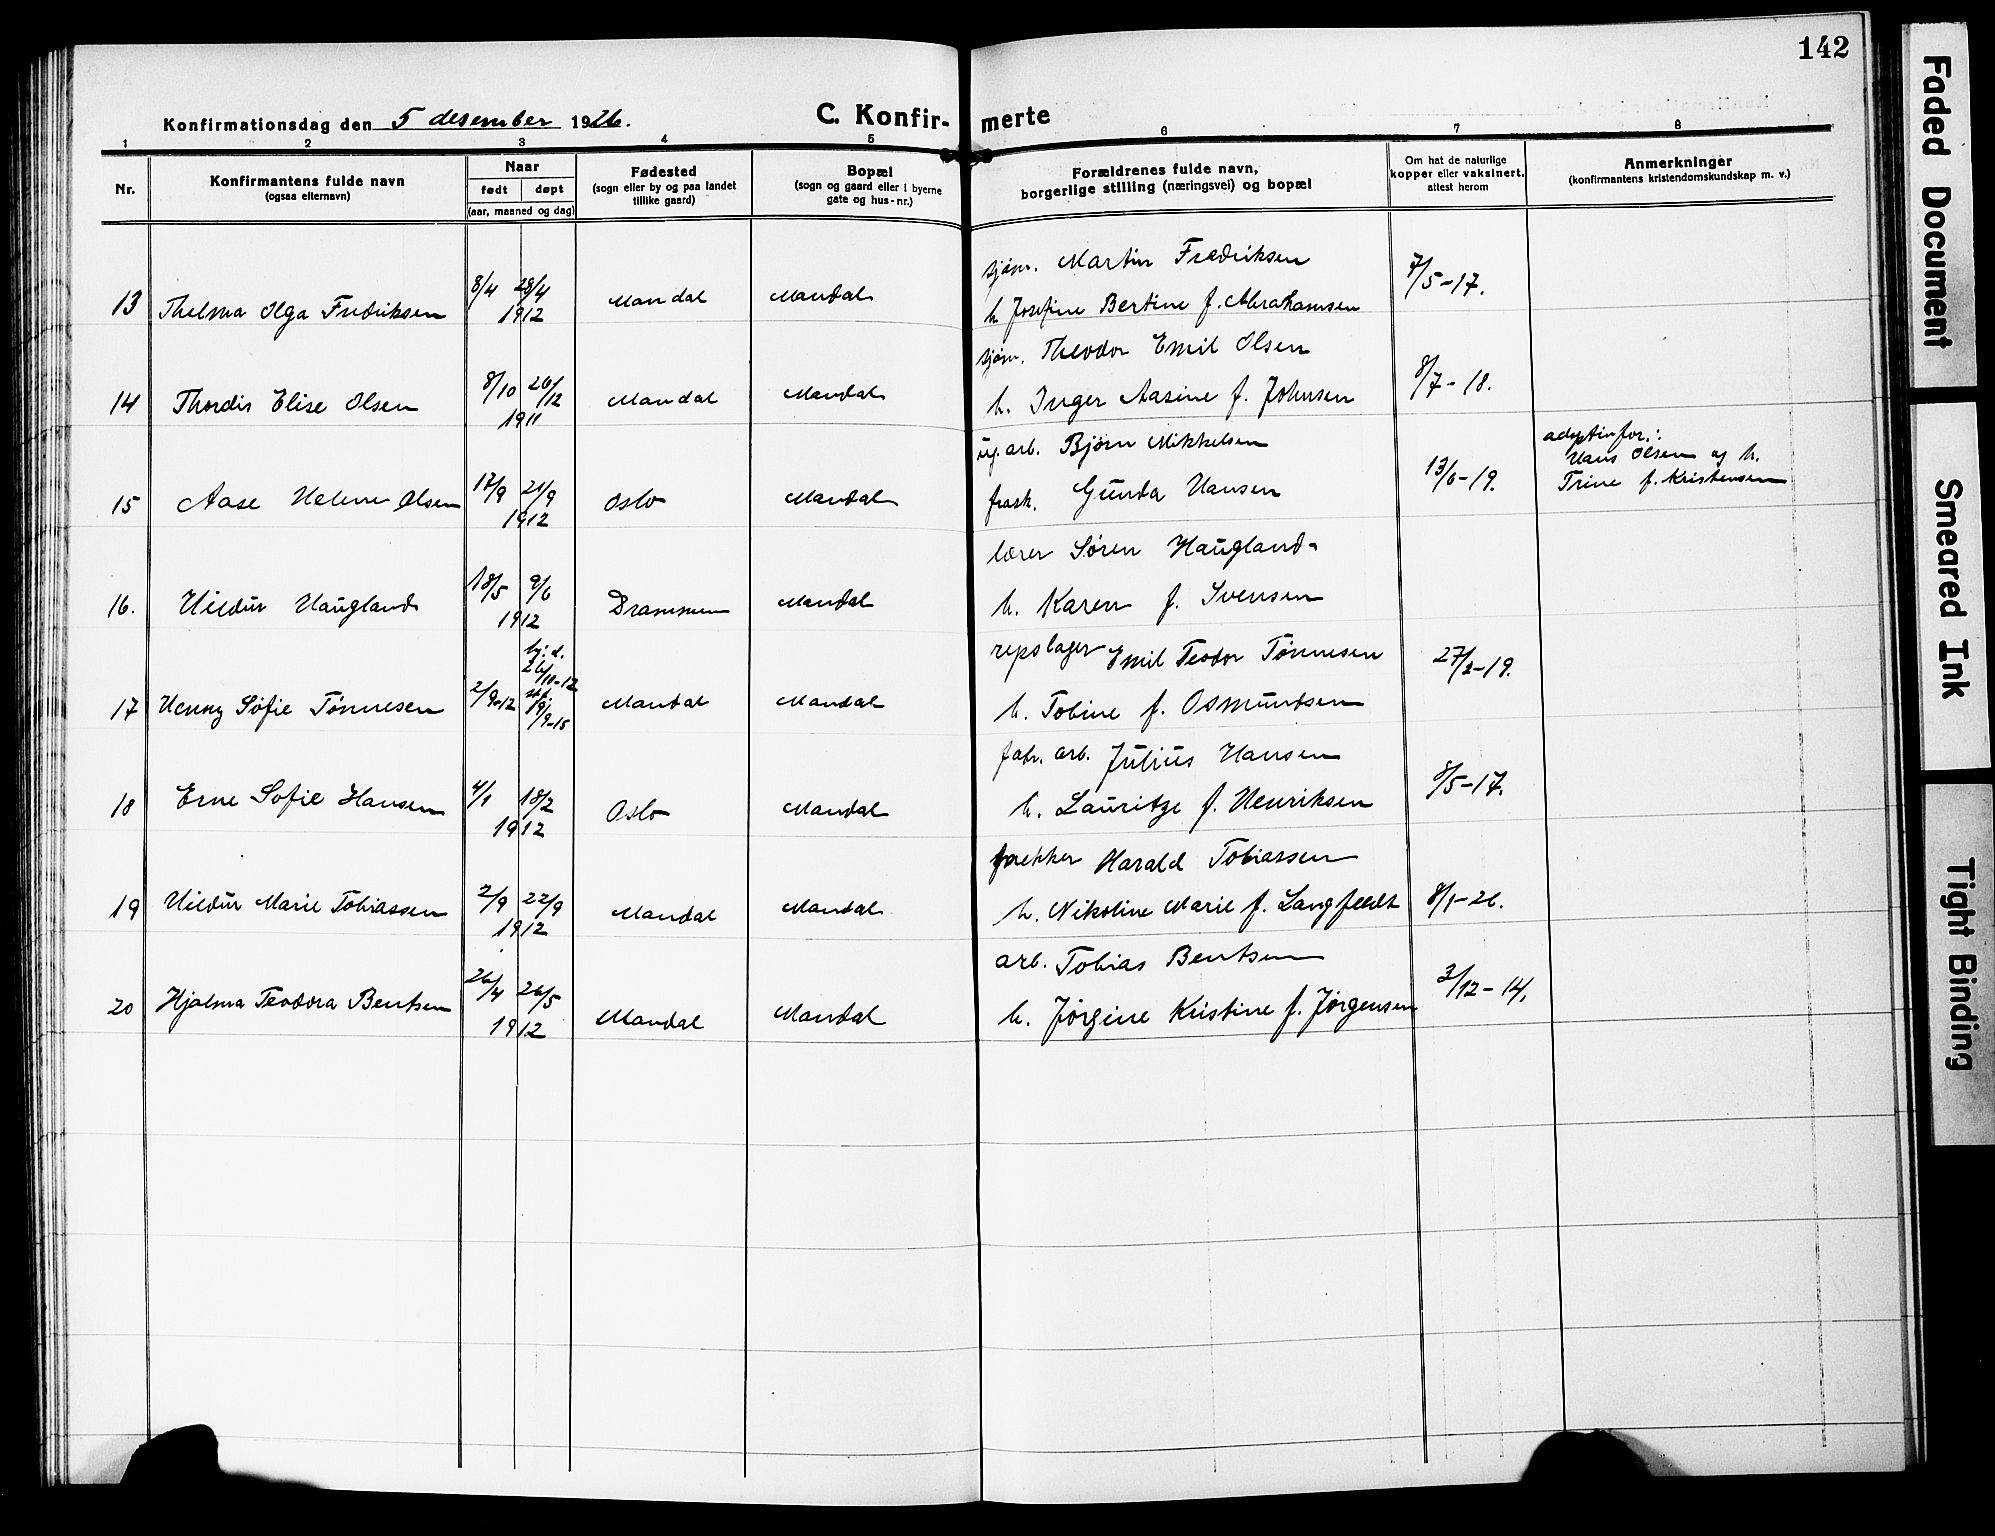 142
Konfirmationsdag den 5 desember 1926.
C. Konfir- merte
1 2 3 4 5 6 7 8
Nr.
Konfirmantens fulde navn
(ogsaa efternavn)
Naar
født døpt
(aar, maaned og dag)
Fødested
(sogn eller by og paa landet
tillike gaard)
Bopæl
(sogn og gaard eller i byerne
gate og hus-nr.)
Forældrenes fulde navn,
borgerlige stilling (næringsvei) og bopæl
Om hat de naturlige
kopper eller vaksinert,
attest herom
Anmerkninger
(konfirmantens kristendomskundskap m. v.)
sjøm. Martin Fredriksen
13 Thelma Olga Fredriksen 8/4 28/4 Mandal Mandal 7/5-17.
1912 h Josefine Bertine f. Abrahamsen
sjøm. Theodor Emil Olsen
14 Thordis Elise Olsen 8/10 26/12 Mandal Mandal h. Inger Aasine f. Johnsen 8/7-18.
1911
ug. arb. Bjørn Mikkelsen
adoptivfor.:
Hans Olsen og h.
Trine f. Kristensen
15 Aase Helene Olsen 17/9 21/9 Oslo Mandal frask. Gunda Hansen 13/6-19.
1912
lærer Søren Haugland
16. Hildur Haugland 18/5 9/6 Drammen Mandal h. Karen f. Svensen
1912
repslager Emil Teodor Tønnesen
hj: d.
26/10-12
17 Henny Sofie Tønnesen 2/9-12 Mandal Mandal h. Tobine f. Osmundsen 27/2-19.
st. f.
19/9-15
fabr. arb. Julius Hansen
18 Erne Sofie Hansen 4/1 18/2 Oslo Mandal h. Lauritze f. Henriksen 8/5-17.
1912
Harald Tobiassen
19 Hildur Marie Tobiassen 2/9 22/9 Mandal Mandal h. Nikoline Marie f. Langfeldt 8/1-26.
1912
arb. Tobias Bentsen
20 Hjalma Teodora Bentsen 26/4 26/5 Mandal Mandal h. Jørgine Kristine f. Jørgensen 3/12-14.
1912
Faded Document
Smeared Ink
Tight Binding